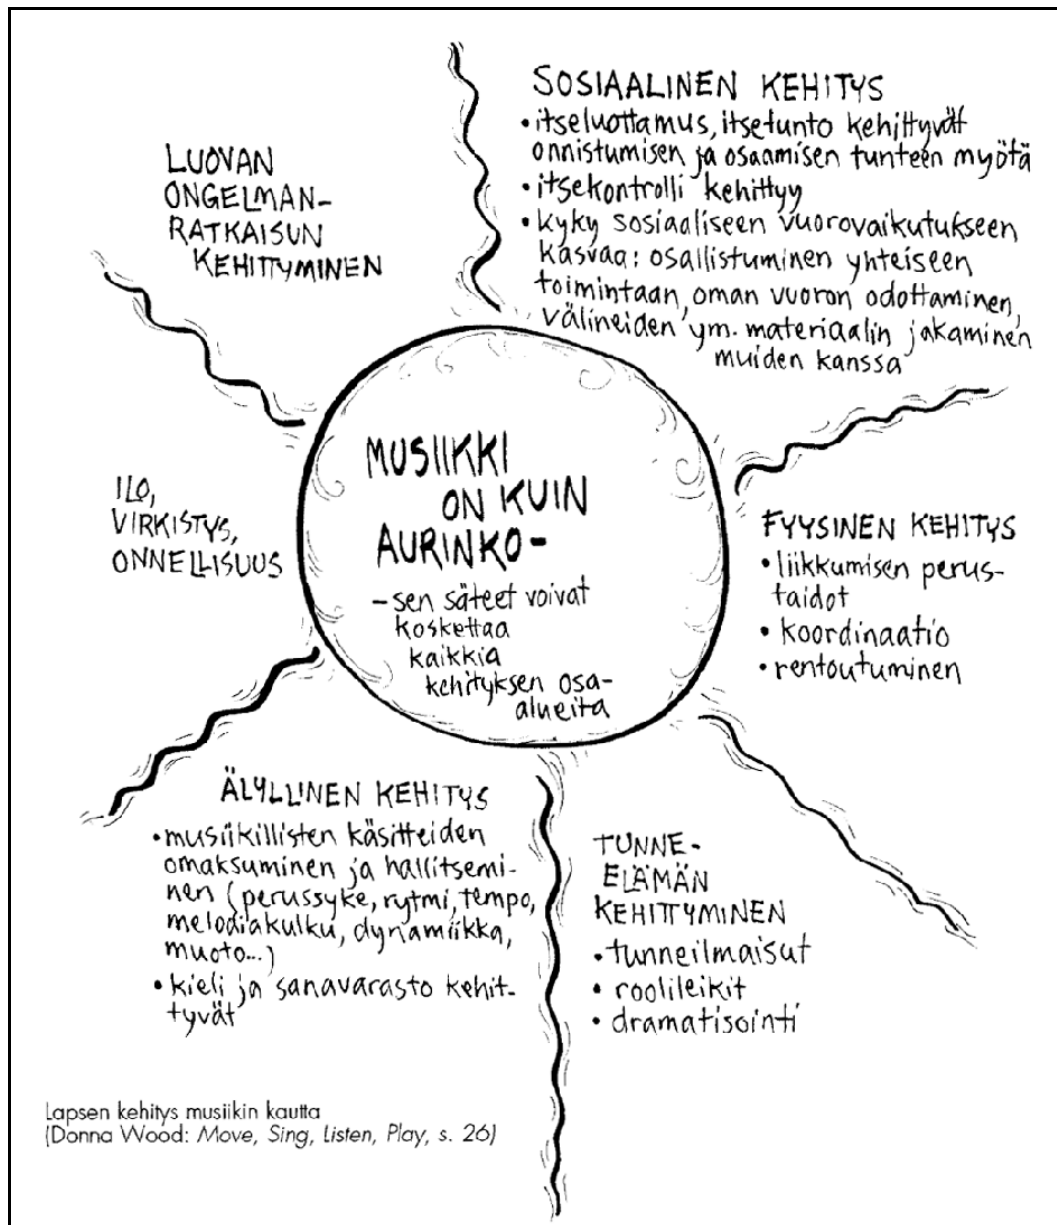 MUSIIKKI
ON KUIN
AURINKO-
- sen säteet voivat
koskettaa
kaikkia
kehityksen osa-
alueita
SOSIAALINEN KEHITYS
• itseluottamus, itsetunto kehittyvät
onnistumisen ja osaamisen tunteen myötä
• itsekontrolli kehittyy
• kyky sosiaaliseen vuorovaikutukseen
kasvaa: osallistuminen yhteiseen
toimintaan, oman vuoron odottaminen,
välineiden ym. materiaalin jakaminen
muiden kanssa
FYYSINEN KEHITYS
• liikkumisen perus-
taidot
• koordinaatio
• rentoutuminen
TUNNE-
ELÄMÄN
KEHITTYMINEN
• tunneilmaisut
• roolileikit
• dramatisointi
ÄLYLLINEN KEHITYS
• musiikillisten käsitteiden
omaksuminen ja hallitsemi-
nen (perussyke, rytmi, tempo,
melodiakulku, dynamiikka,
muoto...)
• kieli ja sanavarasto kehit-
tyvät
ILO,
VIRKISTYS,
ONNELLISUUS
LUOVAN
ONGELMAN-
RATKAISUN
KEHITTYMINEN
Lapsen kehitys musiikin kautta
(Donna Wood: Move, Sing, Listen, Play, s. 26)